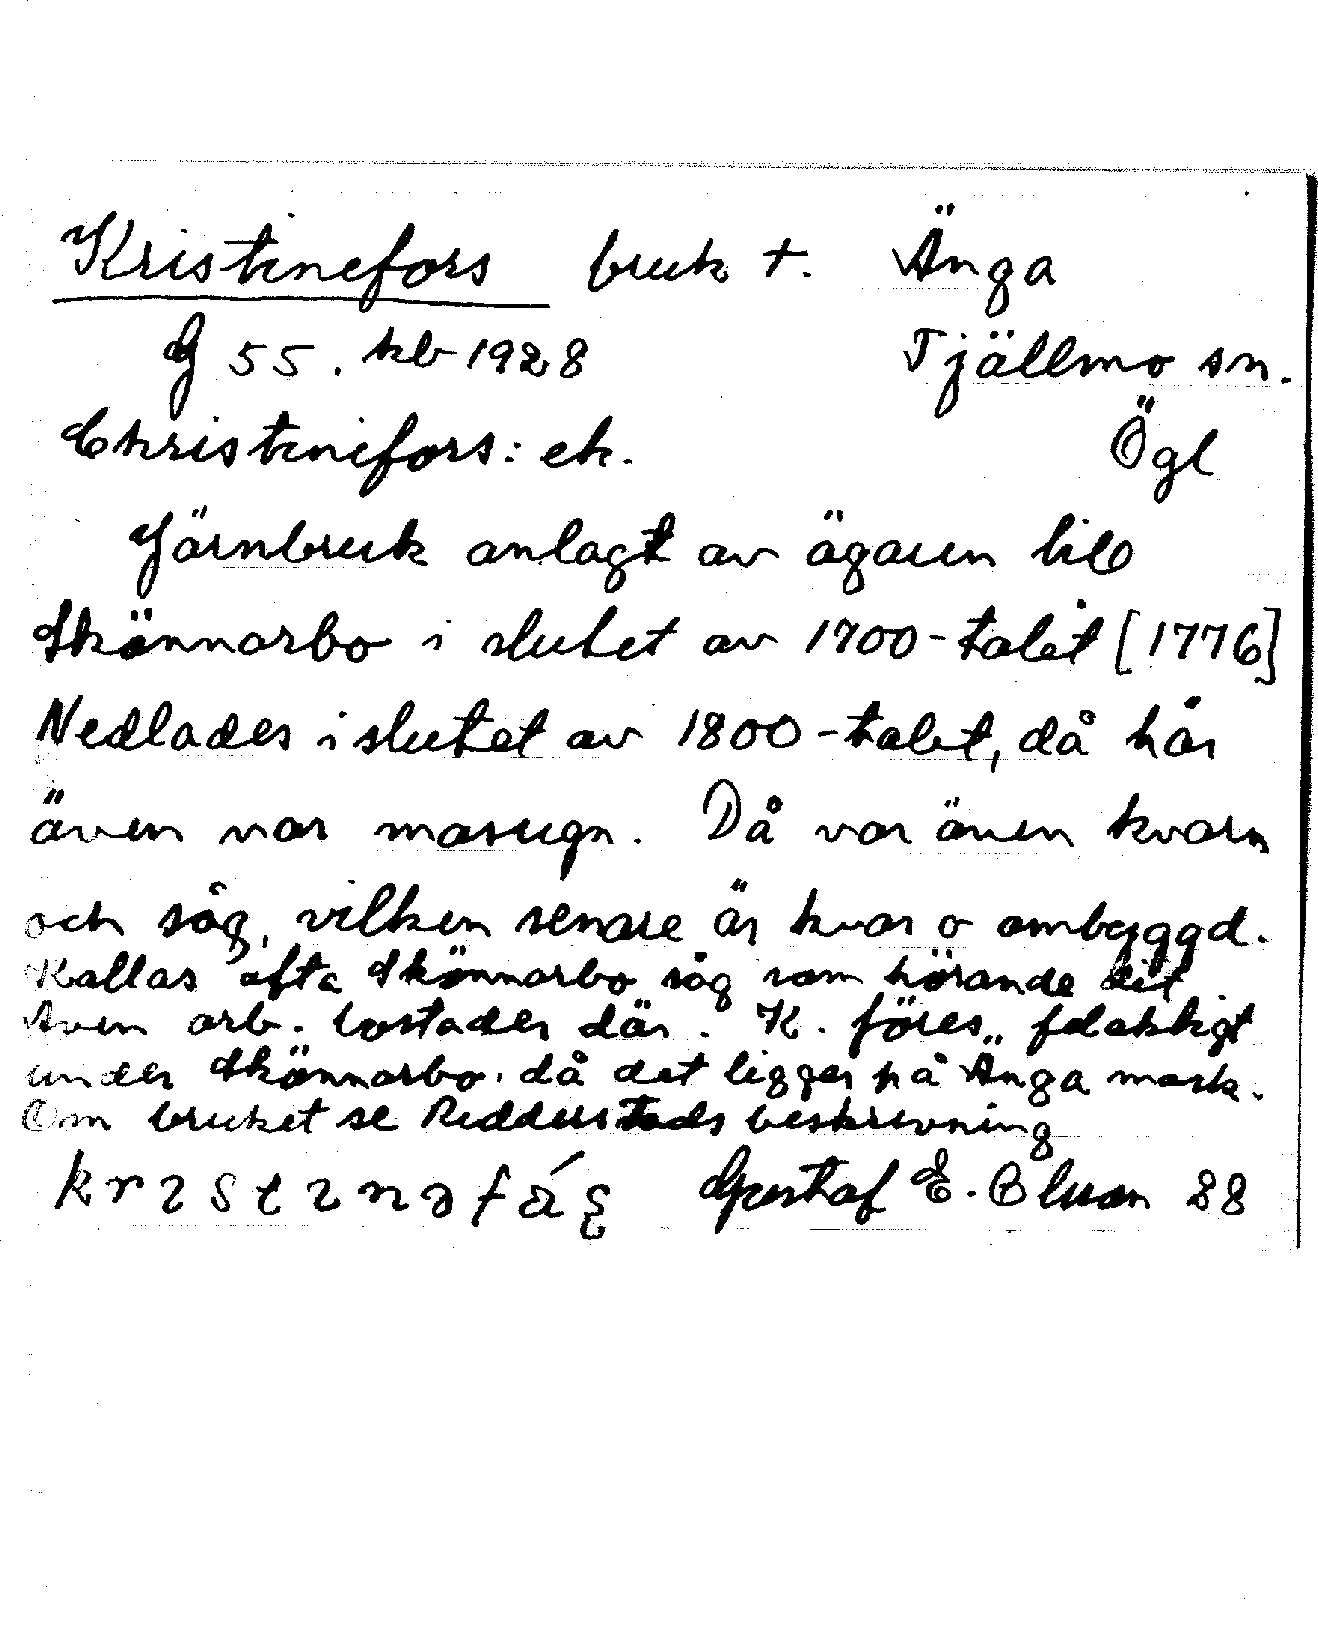 Kristinefors bruk †. Änga
G 55. kb 1928 Tjällmo sn.
Christinefors: ek. Ögl
Järnbruk anlagt av ägaren till
Skönnarbo i slutet av 1700-talet [1776]
Nedlades i slutet av 1800-talet, då här
även var masugn. Då var även kvarn
och såg, vilken senare är kvar o ombyggd.
Kallas ofta Skönnarbo såg som hörande dit.
Även arb. bostäder där. K. föres felaktigt
under Skönnarbo, då det ligger på Änga mark.
Om bruket se Ridderstads beskrivning
Gustaf E. Olsson 88